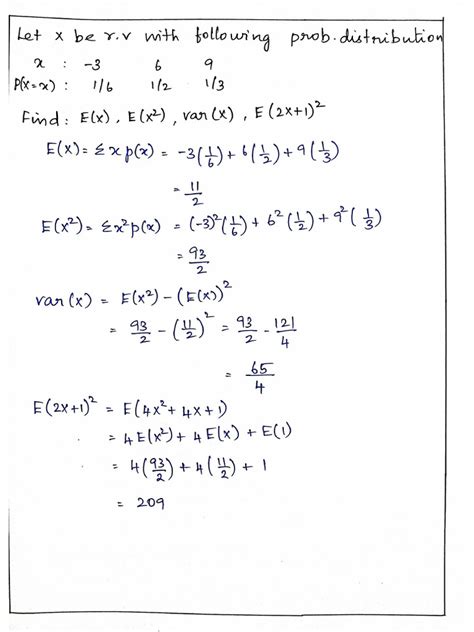 Let x be r.v with following prob. distribution
x : -3 6 9
P(X=x) : 1/6 1/2 1/3
Find : E(x), E(x²), var(x), E(2x+1)²
E(X) = Σxp(x) = -3(1/6) + 6(1/2) + 9(1/3)
= 11/2
E(X²) = Σx²p(x) = (-3)²(1/6) + 6²(1/2) + 9²(1/3)
= 93/2
var(x) = E(x²) - (E(x))²
= 93/2 - (11/2)² = 93/2 - 121/4
= 65/4
E(2x+1)² = E(4x²+4x+1)
= 4E(x²) + 4E(x) + E(1)
= 4(93/2) + 4(11/2) + 1
= 209